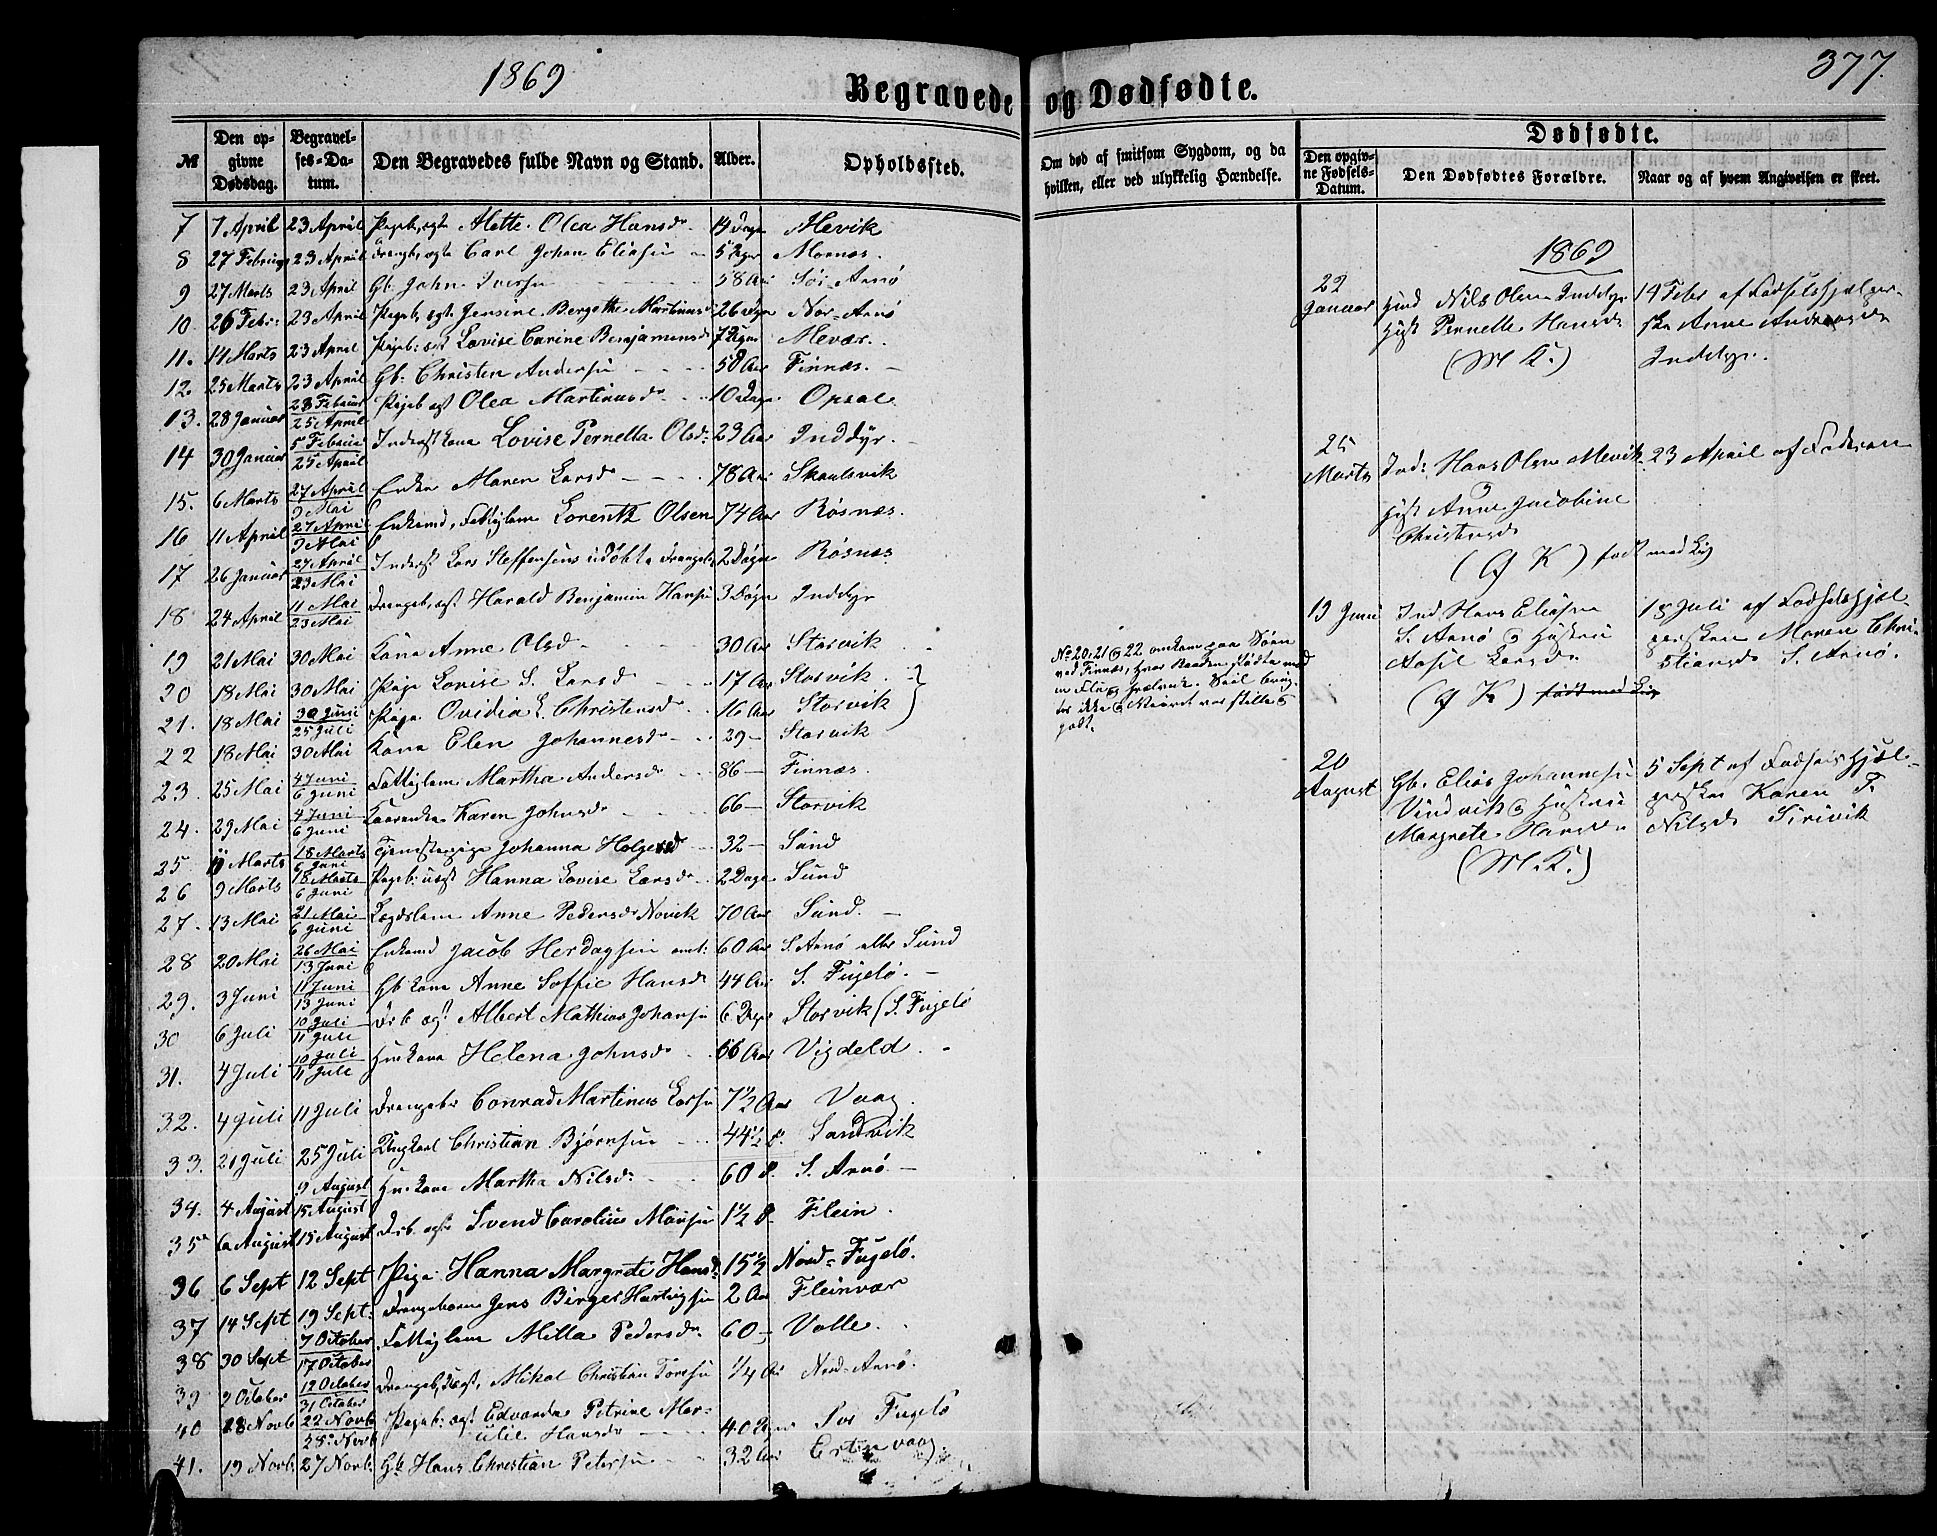 1869
377.
Begravede og Dødfødte.
№
Den opgivne Dødsdag.
Begravelses-Datum.
Den Begravedes fulde Navn og Stand.
Alder.
Opholdssted.
Om død af smitsom Sygdom, og da hvilken, eller ved ulykkelig Hændelse.
Dødfødte.
Den opgivne Fødsels-Datum.
Den Dødfødtes Forældre.
Naar og af hvem Angivelsen er skeet.
7 7 April 23 April Pigeb, ægte Mette Olea Hansdr 14 Dage Mevik
8 27 Februar 23 April Drengb, ægte Carl Johan Eliasen 5 Uger Mornæs
9 27 Marts 23 April Gb John Iversen 58 Aar Sør-Arnø
10 26 Febr: 23 April Pigeb, ægt Jensine Bergethe Martinusd 26 Dage Nor-Arnø
11. 14 Marts 23 April Pigeb: ægt Lovise Carine Benjaminsd 7 Uger Mevær.
12. 25 Marts 23 April Gb: Christen Andersen 50 Aar Finnæs.
13. 28 Januar 28 Februar 25 April Pigeb ægt Olea Martinusdr 10 Dage Opsal
14 30 Januar 5 Februar 25 April Inderst Kone Lovise Pernella Olsd: 29 Aar Inddyr.
15. 6 Marts 27 April 9 Mai Enke Maren Larsd 78 Aar Skaulsvik
16 11 April 27 April 9 Mai Enkemd, Fattiglem Lorentz Olsen 74 Aar Røsnæs.
17 26 Januar 27 April 23 Mai Inderst Lars Steffensens udøbte Drengeb 2 Døgn Røsnæs
18 24 April 11 Mai 23 Mai Drengeb, ægt Harald Benjamin Hansen 3 Døgn Inddyr
19 21 Mai 30 Mai Kone Anne Olsd 30 Aar Storvik
20 18 Mai 30 Mai Pige Lovise S. Larsd 17 Aar Storvik
21. 18 Mai 30 Juni 25 Juli Pige Ovidia E. Christensd 16 Aar Storvik
22 18 Mai 30 Mai Kone Elen Johannesd 29 Storvik
23. 25 Mai 4 Juni 6 Juni Fattiglem Martha Andersd 86 Finnæs.
24. 29 Mai 4 Juni 6 Juni Karen Johnsd 66 Storvik
25 11 Marts 18 Marts 6 Juni Tjenstepige Johanna Holgersd 32 Sund
26 9 Marts 18 Marts 6 Juni Pigeb: uægt Hanna Lovise Larsd 2 Dage Sund
27. 13 Mai 21 Mai 6 Juni Lægdslem Anne Pedersdr Novik 70 Aar Sund.
28 20 Mai 26 Mai 13 Juni Enkemd Jacob Herdagsen 60 Aar S. Arnø eller Sund
29. 3 Juni 11 Juni 13 Juni Gb kone Anne Soffie Hansd 44 Aar S. Fugelø.
30 6 Juli 10 Juli 11 Juli Drb ægt Albert Mathias Johansen 6 Uger Storvik (S. Fugelø
31. 4 Juli 10 Juli 11 Juli Huskone Helena Johnsd 66 Aar Vigdeld
32. 4 Juli 11 Juli Drengeb Conrad Martinus Larsen 7½ Aar Vaag.
33. 21 Juli 25 Juli Ungkarl Christian Bjørnsen 44½ Sandvik
34. 4 August 9 August 15 August Huskone Martha Nilsd 60 S. Arnø
35 6 August 15 August Drb. ægte Svend Carolius Monsen 1½ Flein.
36 6 Sept 12 Sept Pige Hanna Margrete Hansd 15½ Nord-Fugelø.
37 14 Sept 19 Sept: Drengebarn Jens Birger Hartvigsen 2 Aar Fleinvær
38 30 Sept 9 October 17 October Fattiglem Milla Pedersd 60 Valle.
39 2 October 12 October 31 October Drengeb, Uægt, Mikal Christian Toresen ¼ Aar Nord-Arnø.
40 18 Novb 22 Novb 28 Novb Pigeb: ægt Edvarda Petrine Marulie Hansdr 40 Uger Sør Fugelø
41. 19 Novb. 27 Novb. Gb Hans Christian Petersen 32 Aar Ertenvaag
No 20, 21 & 22 omkom paa Søen
ved Finnæs, hvor Baaden stødte mod
en Flu & hvælvede. Seil brug-
tes ikke & Veiret var stille &
godt.
1869
22 Januar
Hmd Nils Olsen Inddyr
Hust Pernelle Hansdr
(M K.)
14 Febr af Fødselshjælper-
ske Anne Andersdr
Inddyr.
25 Marts
Ind: Hans Olsen Mevik
&
Hust Anne Jacobine
Christensdr
(Q K) født med Liv
23 April af Faderen
19 Juni
Ind Hans Eliasen
S. Arnø & Hustru
Larsdr
(Q K) født med Liv
18 Juli af Fødselshjæl-
persken Maren Chri-
stiansdr S. Arnø.
20 August
Gb. Elias Johannesen
Vindvik & Hustru
Margrete Hansdr
(M. K.)
5 Sept af Fødselshjæl-
perske Karen F.
Nilsdr Sirivik